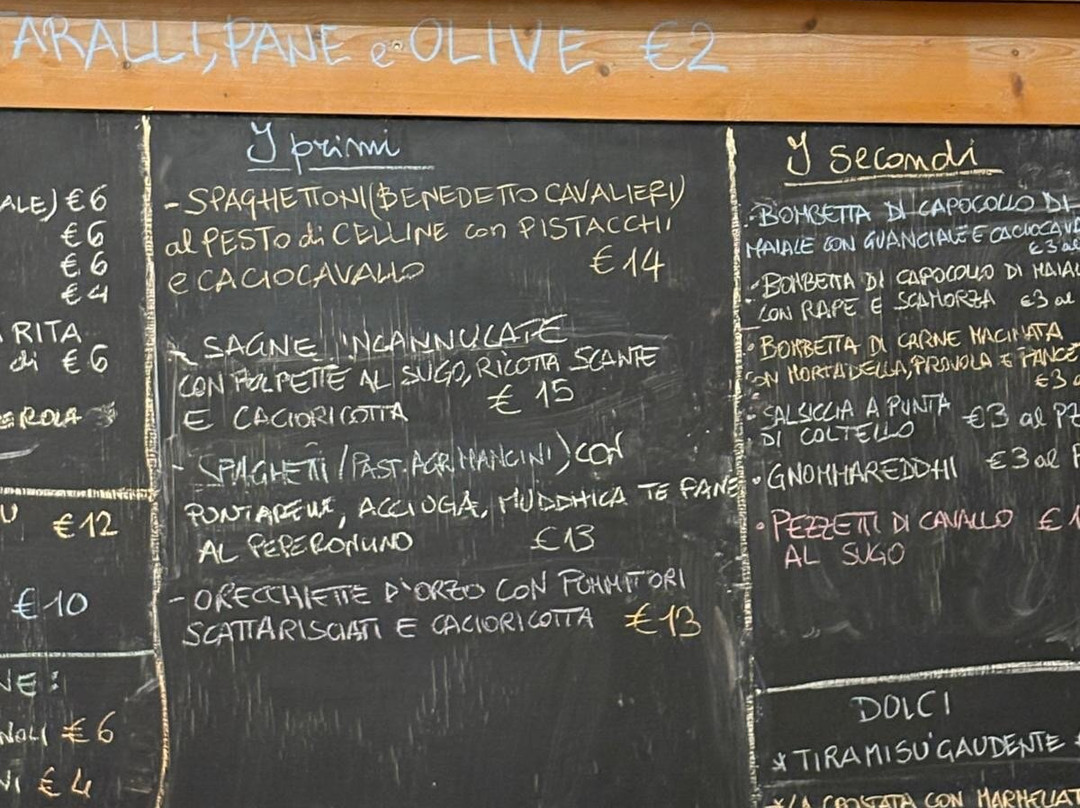 ARALLI, PANE e OLIVE €2
ALE) €6
€6
€6
€4
RITA
di €6
EROLA
U €12
€10
NE:
NOLI €6
NI €4
I primi
- SPAGHETTONI (BENEDETTO CAVALIERI)
al PESTO di CELLINE con PISTACCHI
e CACIOCAVALLO €14
- SAGNE 'NCANNULATE
CON POLPETTE AL SUGO, RICOTTA SCANTE
E CACIORICOTTA € 15
- SPAGHETTI (PAST. AGR. MANCINI) CON
PUNTARELLE, ACCIUGA, MUDDHICA TE PANE
AL PEPERONCINO €13
- ORECCHIETTE D'ORZO CON POMMITORI
SCATTARISCIATI E CACIORICOTTA €13
I secondi
• BOMBETTA DI CAPOCOLLO DI
MAIALE CON GUANCIALE E CACIOCAV
€3 al
• BOMBETTA DI CAPOCOLLO DI MAIAL
CON RAPE E SCAMORZA €3 al
• BOMBETTA DI CARNE MACINATA
CON MORTADELLA, PROVOLA E PANCET
€3 a
• SALSICCIA A PUNTA €3 al PZ
DI COLTELLO
• GNOMMAREDDHI €3 al P
• PEZZETTI DI CAVALLO €1
AL SUGO
DOLCI
* TIRAMISU' GAUDENTE *
* LA CROSTATA CON MARMELLAT